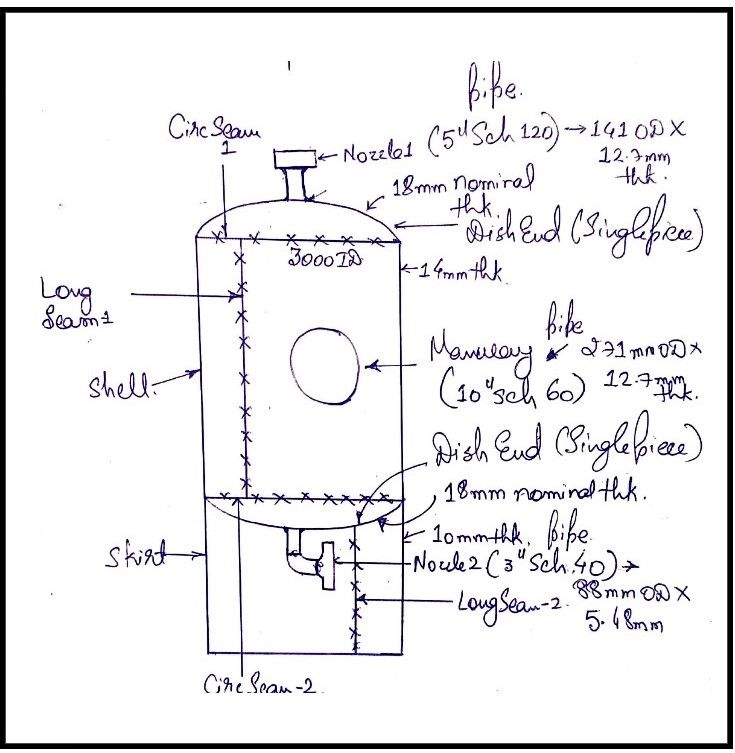 pipe.
Circ Seam
1
Nozzle1 (5" Sch 120) → 141 OD X
12.7mm
thk.
18mm nominal
thk.
Dish End (Singlepiece)
3000 ID
14mmthk.
Long
Seam1
pipe
Manway 271mmOD x
(10" sch 60) 12.7mm
thk.
Shell.
Dish End (Singlepiece)
18mm nominal thk.
10mmthk. pipe.
Skirt
Nozzle2 (3" Sch. 40) →
88mm OD X
LongSeam-2.
5.48mm
Circ Seam-2